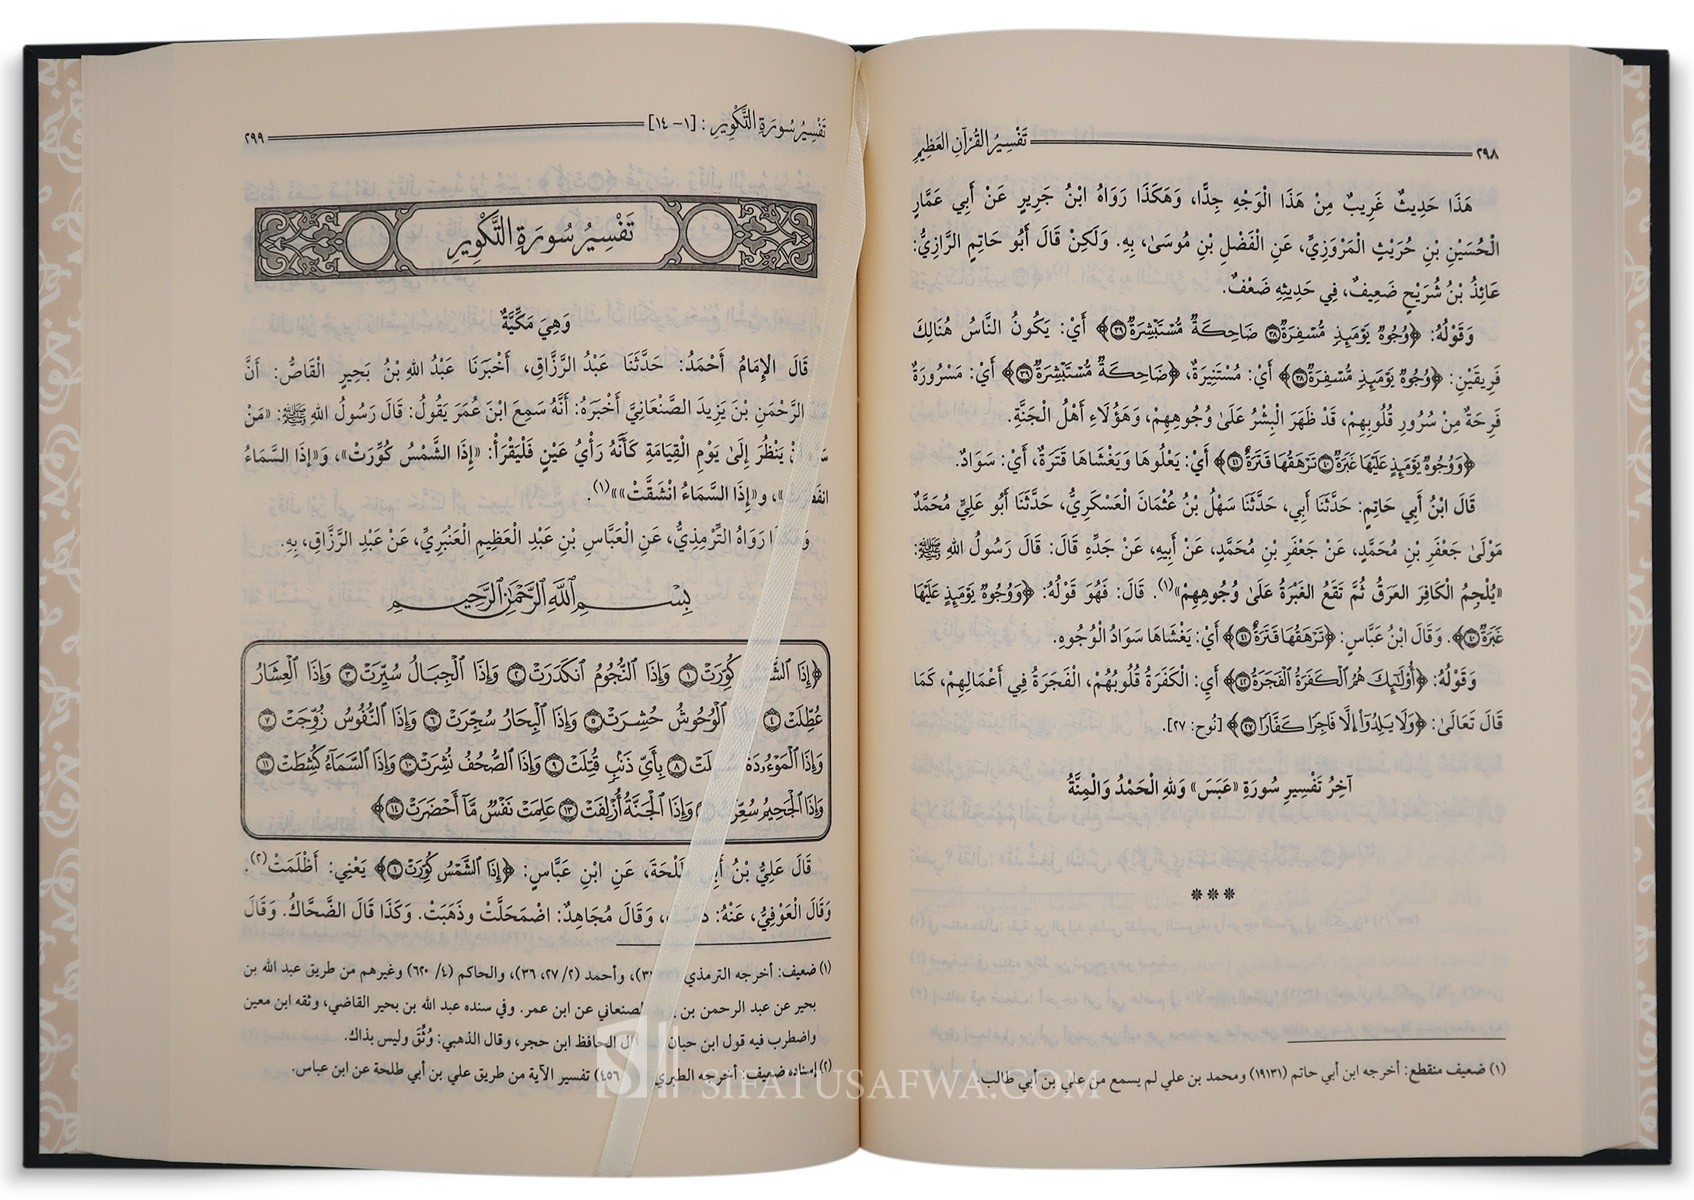 ٢٩٨ تَفْسِيرُ القُرْآنِ العَظِيمِ
هَذَا حَدِيثٌ غَرِيبٌ مِنْ هَذَا الْوَجْهِ جِدًّا، وَهَكَذَا رَوَاهُ ابْنُ جَرِيرٍ عَنْ أَبِي عَمَّارٍ
الْحُسَيْنِ بْنِ حُرَيْثٍ الْمَرْوَزِيِّ، عَنِ الْفَضْلِ بْنِ مُوسَىٰ، بِهِ. وَلَكِنْ قَالَ أَبُو حَاتِمٍ الرَّازِيُّ:
عَائِذُ بْنُ شُرَيْحٍ ضَعِيفٌ، فِي حَدِيثِهِ ضَعْفٌ.
وَقَوْلُهُ: ﴿وُجُوهٌ يَوْمَئِذٍ مُّسْفِرَةٌ ٣٨ ضَاحِكَةٌ مُّسْتَبْشِرَةٌ ٣٩﴾ أَيْ: يَكُونُ النَّاسُ هُنَالِكَ
فَرِيقَيْنِ: ﴿وُجُوهٌ يَوْمَئِذٍ مُّسْفِرَةٌ ٣٨﴾ أَيْ: مُسْتَنِيرَةٌ، ﴿ضَاحِكَةٌ مُّسْتَبْشِرَةٌ ٣٩﴾ أَيْ: مَسْرُورَةٌ
فَرِحَةٌ مِنْ سُرُورِ قُلُوبِهِمْ، قَدْ ظَهَرَ الْبِشْرُ عَلَىٰ وُجُوهِهِمْ، وَهَؤُلَاءِ أَهْلُ الْجَنَّةِ.
﴿وَوُجُوهٌ يَوْمَئِذٍ عَلَيْهَا غَبَرَةٌ ٤٠ تَرْهَقُهَا قَتَرَةٌ ٤١﴾ أَيْ: يَعْلُوهَا وَيَغْشَاهَا قَتَرَةٌ، أَيْ: سَوَادٌ.
قَالَ ابْنُ أَبِي حَاتِمٍ: حَدَّثَنَا أَبِي، حَدَّثَنَا سَهْلُ بْنُ عُثْمَانَ الْعَسْكَرِيُّ، حَدَّثَنَا أَبُو عَلِيٍّ مُحَمَّدٌ
مَوْلَىٰ جَعْفَرِ بْنِ مُحَمَّدٍ، عَنْ جَعْفَرِ بْنِ مُحَمَّدٍ، عَنْ أَبِيهِ، عَنْ جَدِّهِ قَالَ: قَالَ رَسُولُ اللهِ ﷺ:
«يُلْجِمُ الْكَافِرَ العَرَقُ ثُمَّ تَقَعُ الغَبْرَةُ عَلَىٰ وُجُوهِهِمْ»(١). قَالَ: فَهُوَ قَوْلُهُ: ﴿وَوُجُوهٌ يَوْمَئِذٍ عَلَيْهَا
غَبَرَةٌ ٤٠﴾. وَقَالَ ابْنُ عَبَّاسٍ: ﴿تَرْهَقُهَا قَتَرَةٌ ٤١﴾ أَيْ: يَغْشَاهَا سَوَادُ الْوُجُوهِ.
وَقَوْلُهُ: ﴿أُوْلَٰٓئِكَ هُمُ الْكَفَرَةُ الْفَجَرَةُ ٤٢﴾ أَيِ: الْكَفَرَةُ قُلُوبُهُمْ، الْفَجَرَةُ فِي أَعْمَالِهِمْ، كَمَا
قَالَ تَعَالَىٰ: ﴿وَلَا يَلِدُوٓاْ إِلَّا فَاجِرًا كَفَّارًا ٢٧﴾ [نُوح: ٢٧].
آخِرُ تَفْسِيرِ سُورَةِ «عَبَسَ» وَلِلهِ الْحَمْدُ وَالْمِنَّةُ
***
(١) ضعيف منقطع: أخرجه ابن أبي حاتم (١٩١٣١) ومحمد بن علي لم يسمع من علي بن أبي طالب.
تَفْسِيرُ سُورَةِ التَّكْوِيرِ: [١-١٤] ٢٩٩
تَفْسِيرُ سُورَةِ التَّكْوِيرِ
وَهِيَ مَكِّيَّةٌ
قَالَ الإِمَامُ أَحْمَدُ: حَدَّثَنَا عَبْدُ الرَّزَّاقِ، أَخْبَرَنَا عَبْدُ اللهِ بْنُ بَحِيرٍ الْقَاصُّ: أَنَّ
الرَّحْمَنِ بْنَ يَزِيدَ الصَّنْعَانِيَّ أَخْبَرَهُ: أَنَّهُ سَمِعَ ابْنَ عُمَرَ يَقُولُ: قَالَ رَسُولُ اللهِ ﷺ: «مَنْ
يَنْظُرَ إِلَىٰ يَوْمِ الْقِيَامَةِ كَأَنَّهُ رَأْيُ عَيْنٍ فَلْيَقْرَأْ: «إِذَا الشَّمْسُ كُوِّرَتْ»، وَ«إِذَا السَّمَاءُ
»، وَ«إِذَا السَّمَاءُ انْشَقَّتْ»»(١).
رَوَاهُ التِّرْمِذِيُّ، عَنِ الْعَبَّاسِ بْنِ عَبْدِ الْعَظِيمِ الْعَنْبَرِيِّ، عَنْ عَبْدِ الرَّزَّاقِ، بِهِ.
بِسْمِ اللَّهِ الرَّحْمَٰنِ الرَّحِيمِ
﴿إِذَا كُوِّرَتْ ١ وَإِذَا النُّجُومُ انكَدَرَتْ ٢ وَإِذَا الْجِبَالُ سُيِّرَتْ ٣ وَإِذَا الْعِشَارُ
عُطِّلَتْ ٤ الْوُحُوشُ حُشِرَتْ ٥ وَإِذَا الْبِحَارُ سُجِّرَتْ ٦ وَإِذَا النُّفُوسُ زُوِّجَتْ ٧
وَإِذَا الْمَوْءُۥدَةُ ٨ بِأَيِّ ذَنۢبٍ قُتِلَتْ ٩ وَإِذَا الصُّحُفُ نُشِرَتْ ١٠ وَإِذَا السَّمَآءُ كُشِطَتْ ١١
وَإِذَا الْجَحِيمُ سُعِّرَتْ وَإِذَا الْجَنَّةُ أُزْلِفَتْ ١٣ عَلِمَتْ نَفْسٌ مَّآ أَحْضَرَتْ ١٤﴾
قَالَ عَلِيُّ بْنُ أَبِي طَلْحَةَ، عَنِ ابْنِ عَبَّاسٍ: ﴿إِذَا الشَّمْسُ كُوِّرَتْ ١﴾ يَعْنِي: أَظْلَمَتْ(٢).
وَقَالَ الْعَوْفِيُّ، عَنْهُ: ذَهَبَتْ، وَقَالَ مُجَاهِدٌ: اضْمَحَلَّتْ وذَهَبَتْ. وَكَذَا قَالَ الضَّحَّاكُ. وَقَالَ
(١) ضعيف: أخرجه الترمذي، وأحمد (٢/ ٢٧، ٣٦)، والحاكم (٤/ ٦٢٠) وغيرهم من طريق عبد الله بن
بحير عن عبد الرحمن بن الصنعاني عن ابن عمر. وفي سنده عبد الله بن بحير القاضي، وثقه ابن معين
واضطرب فيه قول ابن حبان قال الحافظ ابن حجر، وقال الذهبي: وُثِّقَ وليس بذاك.
(٢) إسناده ضعيف: أخرجه الطبري تفسير الآية من طريق علي بن أبي طلحة عن ابن عباس.
SIFATUSAFWA.COM